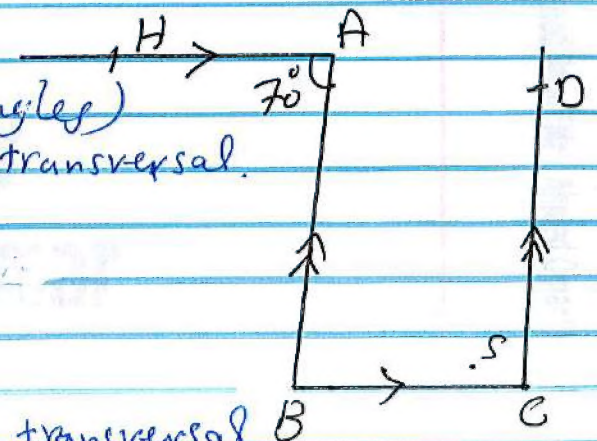 H A
70° D
gles)
transversal.
.S
transversal B C